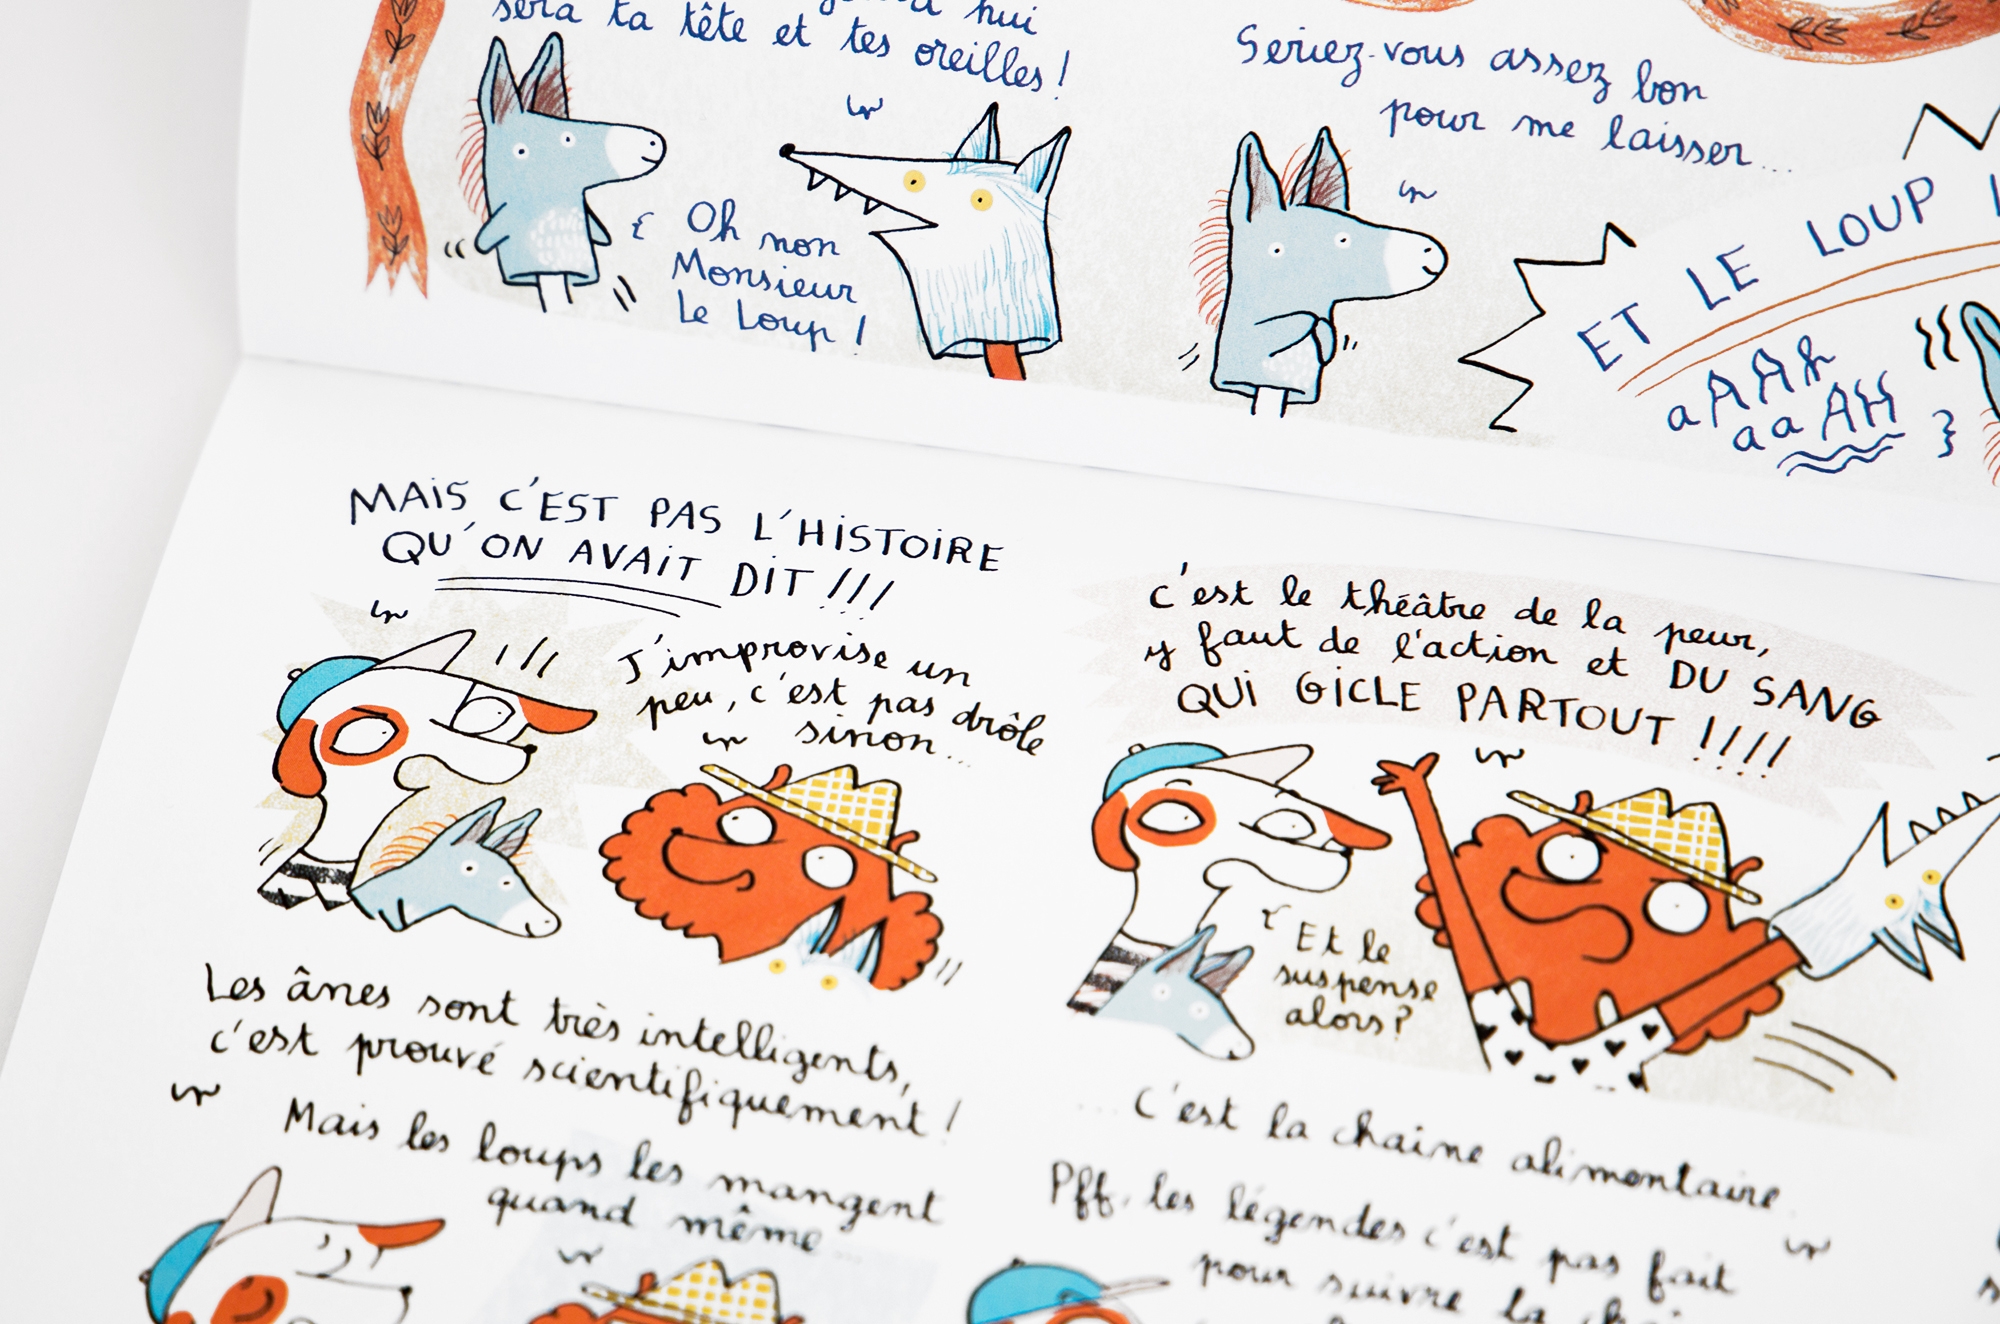 sera ta tête et tes oreilles !
Oh non
Monsieur
Le Loup !
Seriez-vous assez bon
pour me laisser...
ET LE LOUP
aAAh
aaAH
MAIS C'EST PAS L'HISTOIRE
QU'ON AVAIT DIT !!!
J'improvise un
peu, c'est pas drôle
sinon...
c'est le théâtre de la peur,
y faut de l'action et DU SANG
QUI GICLE PARTOUT !!!!
Et le
suspense
alors ?
Les ânes sont très intelligents,
c'est prouvé scientifiquement !
Mais les loups les mangent
quand même...
... C'est la chaine alimentaire.
Pff, les légendes c'est pas fait
pour suivre la